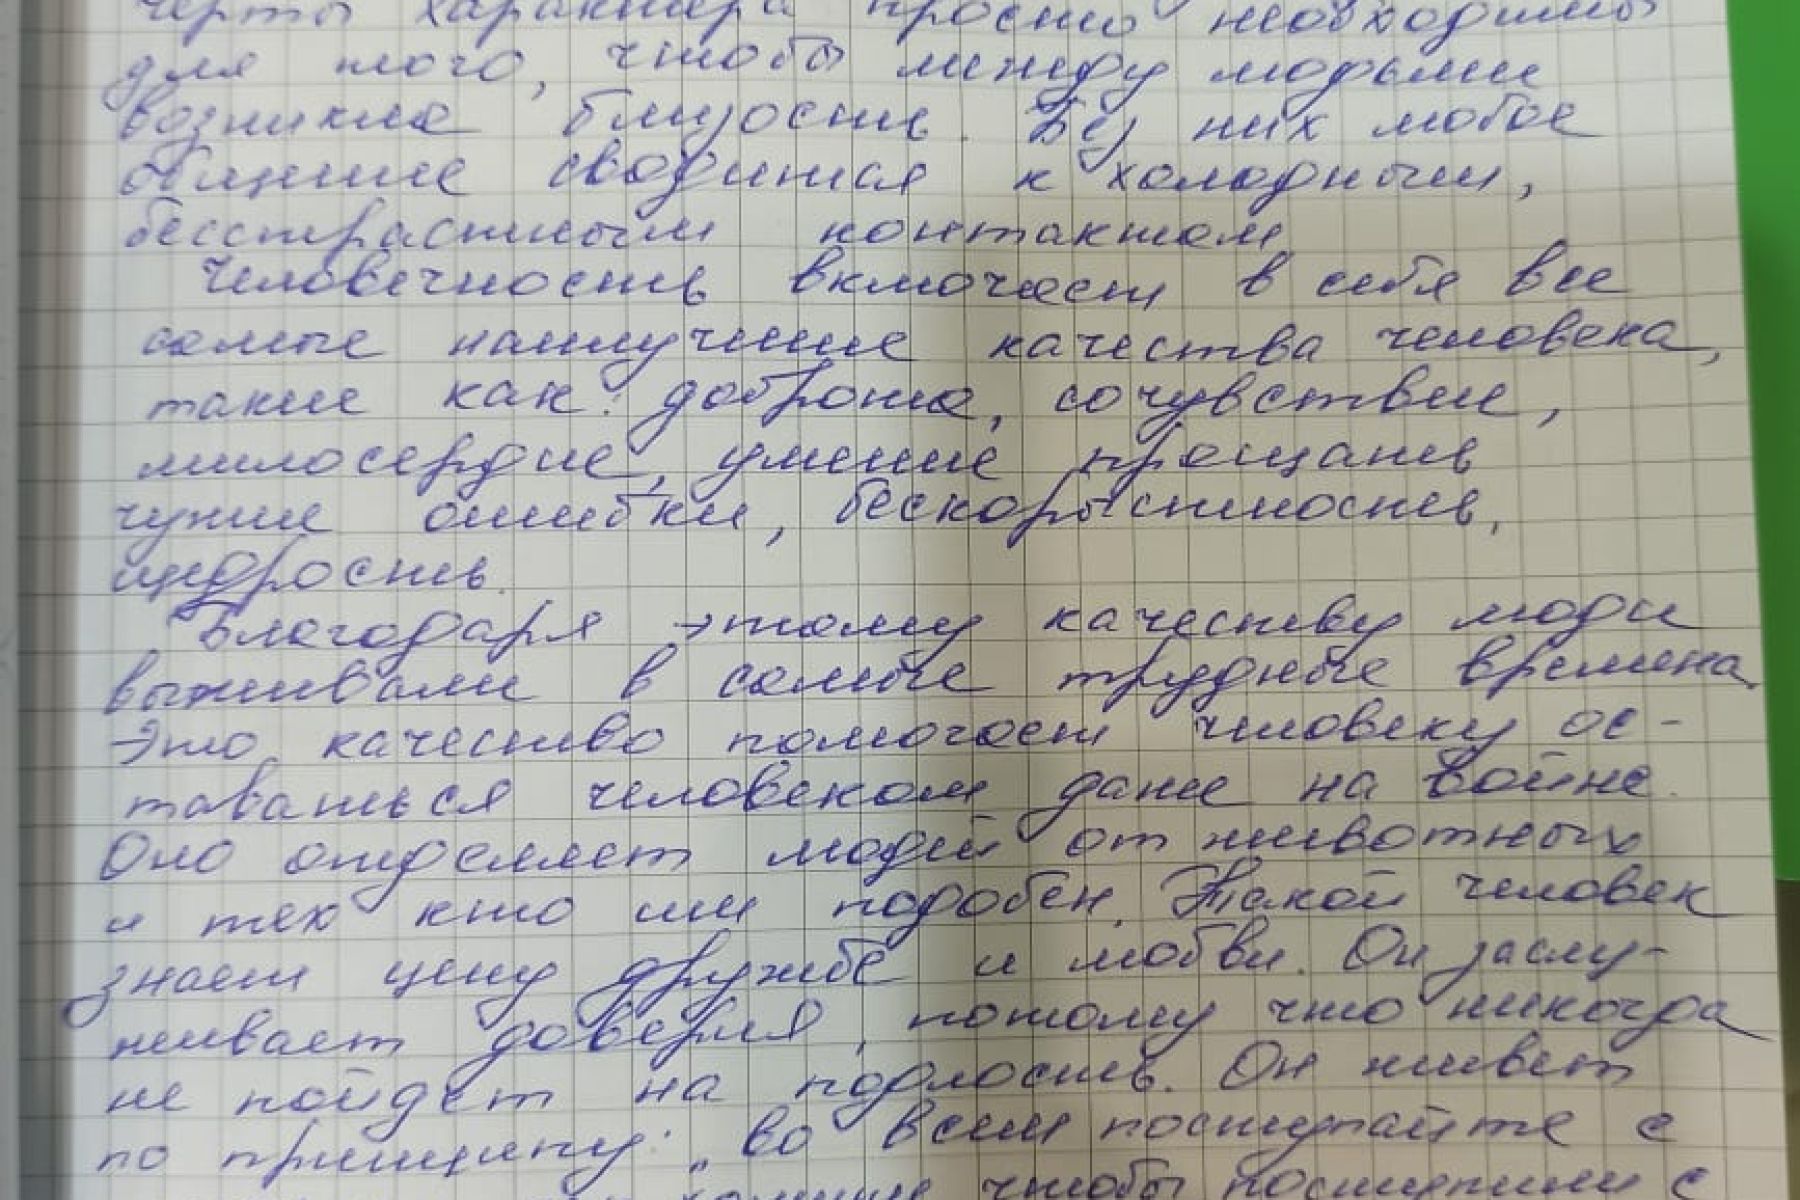 черты характера просто необходимы
для того, чтобы между людьми
возникла близость. Без них любое
общение сводится к холодным,
бесстрастным контактам.
Человечность включает в себя все
самые наилучшие качества человека,
такие как: доброта, сочувствие,
милосердие, умение прощать
чужие ошибки, бескорыстность,
щедрость.
Благодаря этому качеству люди
выживали в самые трудные времена.
Это качество помогает человеку ос-
таваться человеком даже на войне.
Оно отделяет людей от животных
и тех кто им подобен. Такой человек
знает цену дружбе и любви. Он заслу-
живает доверия, потому что никогда
не пойдет на подлость. Он живет
по принципу: "во всем поступайте с
чтобы поступили с